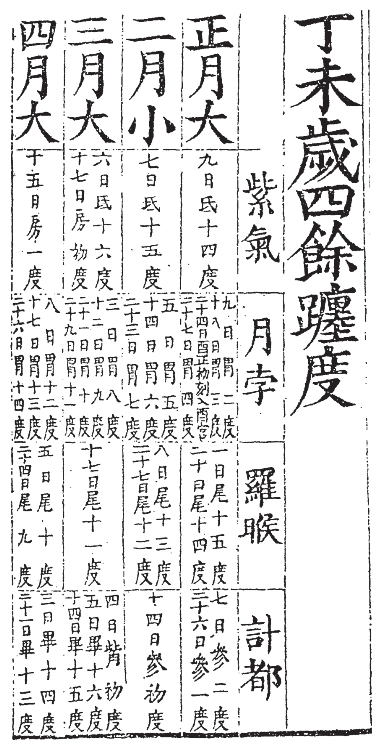 丁未歲四餘躔度
紫氣
月孛
羅㬋
計都
正月大
九日氐十四度
九日胃二度
十八日胃三度
二十四日酉正初刻入酉宮
二十七日胃四度
一日尾十五度
二十日尾十四度
七日參二度
二十六日參一度
二月小
七日氐十五度
五日胃五度
十四日胃六度
二十三日胃七度
八日尾十三度
二十七日尾十二度
十四日參初度
三月大
六日氐十六度
十七日房初度
三日胃八度
十二日胃九度
二十一日胃十度
二十九日胃十一度
十七日尾十一度
四日觜初度
五日畢十六度
十四日畢十五度
四月大
十五日房一度
八日胃十二度
十七日胃十三度
二十六日胃十四度
五日尾十度
二十四日尾九度
三日畢十四度
二十一日畢十三度